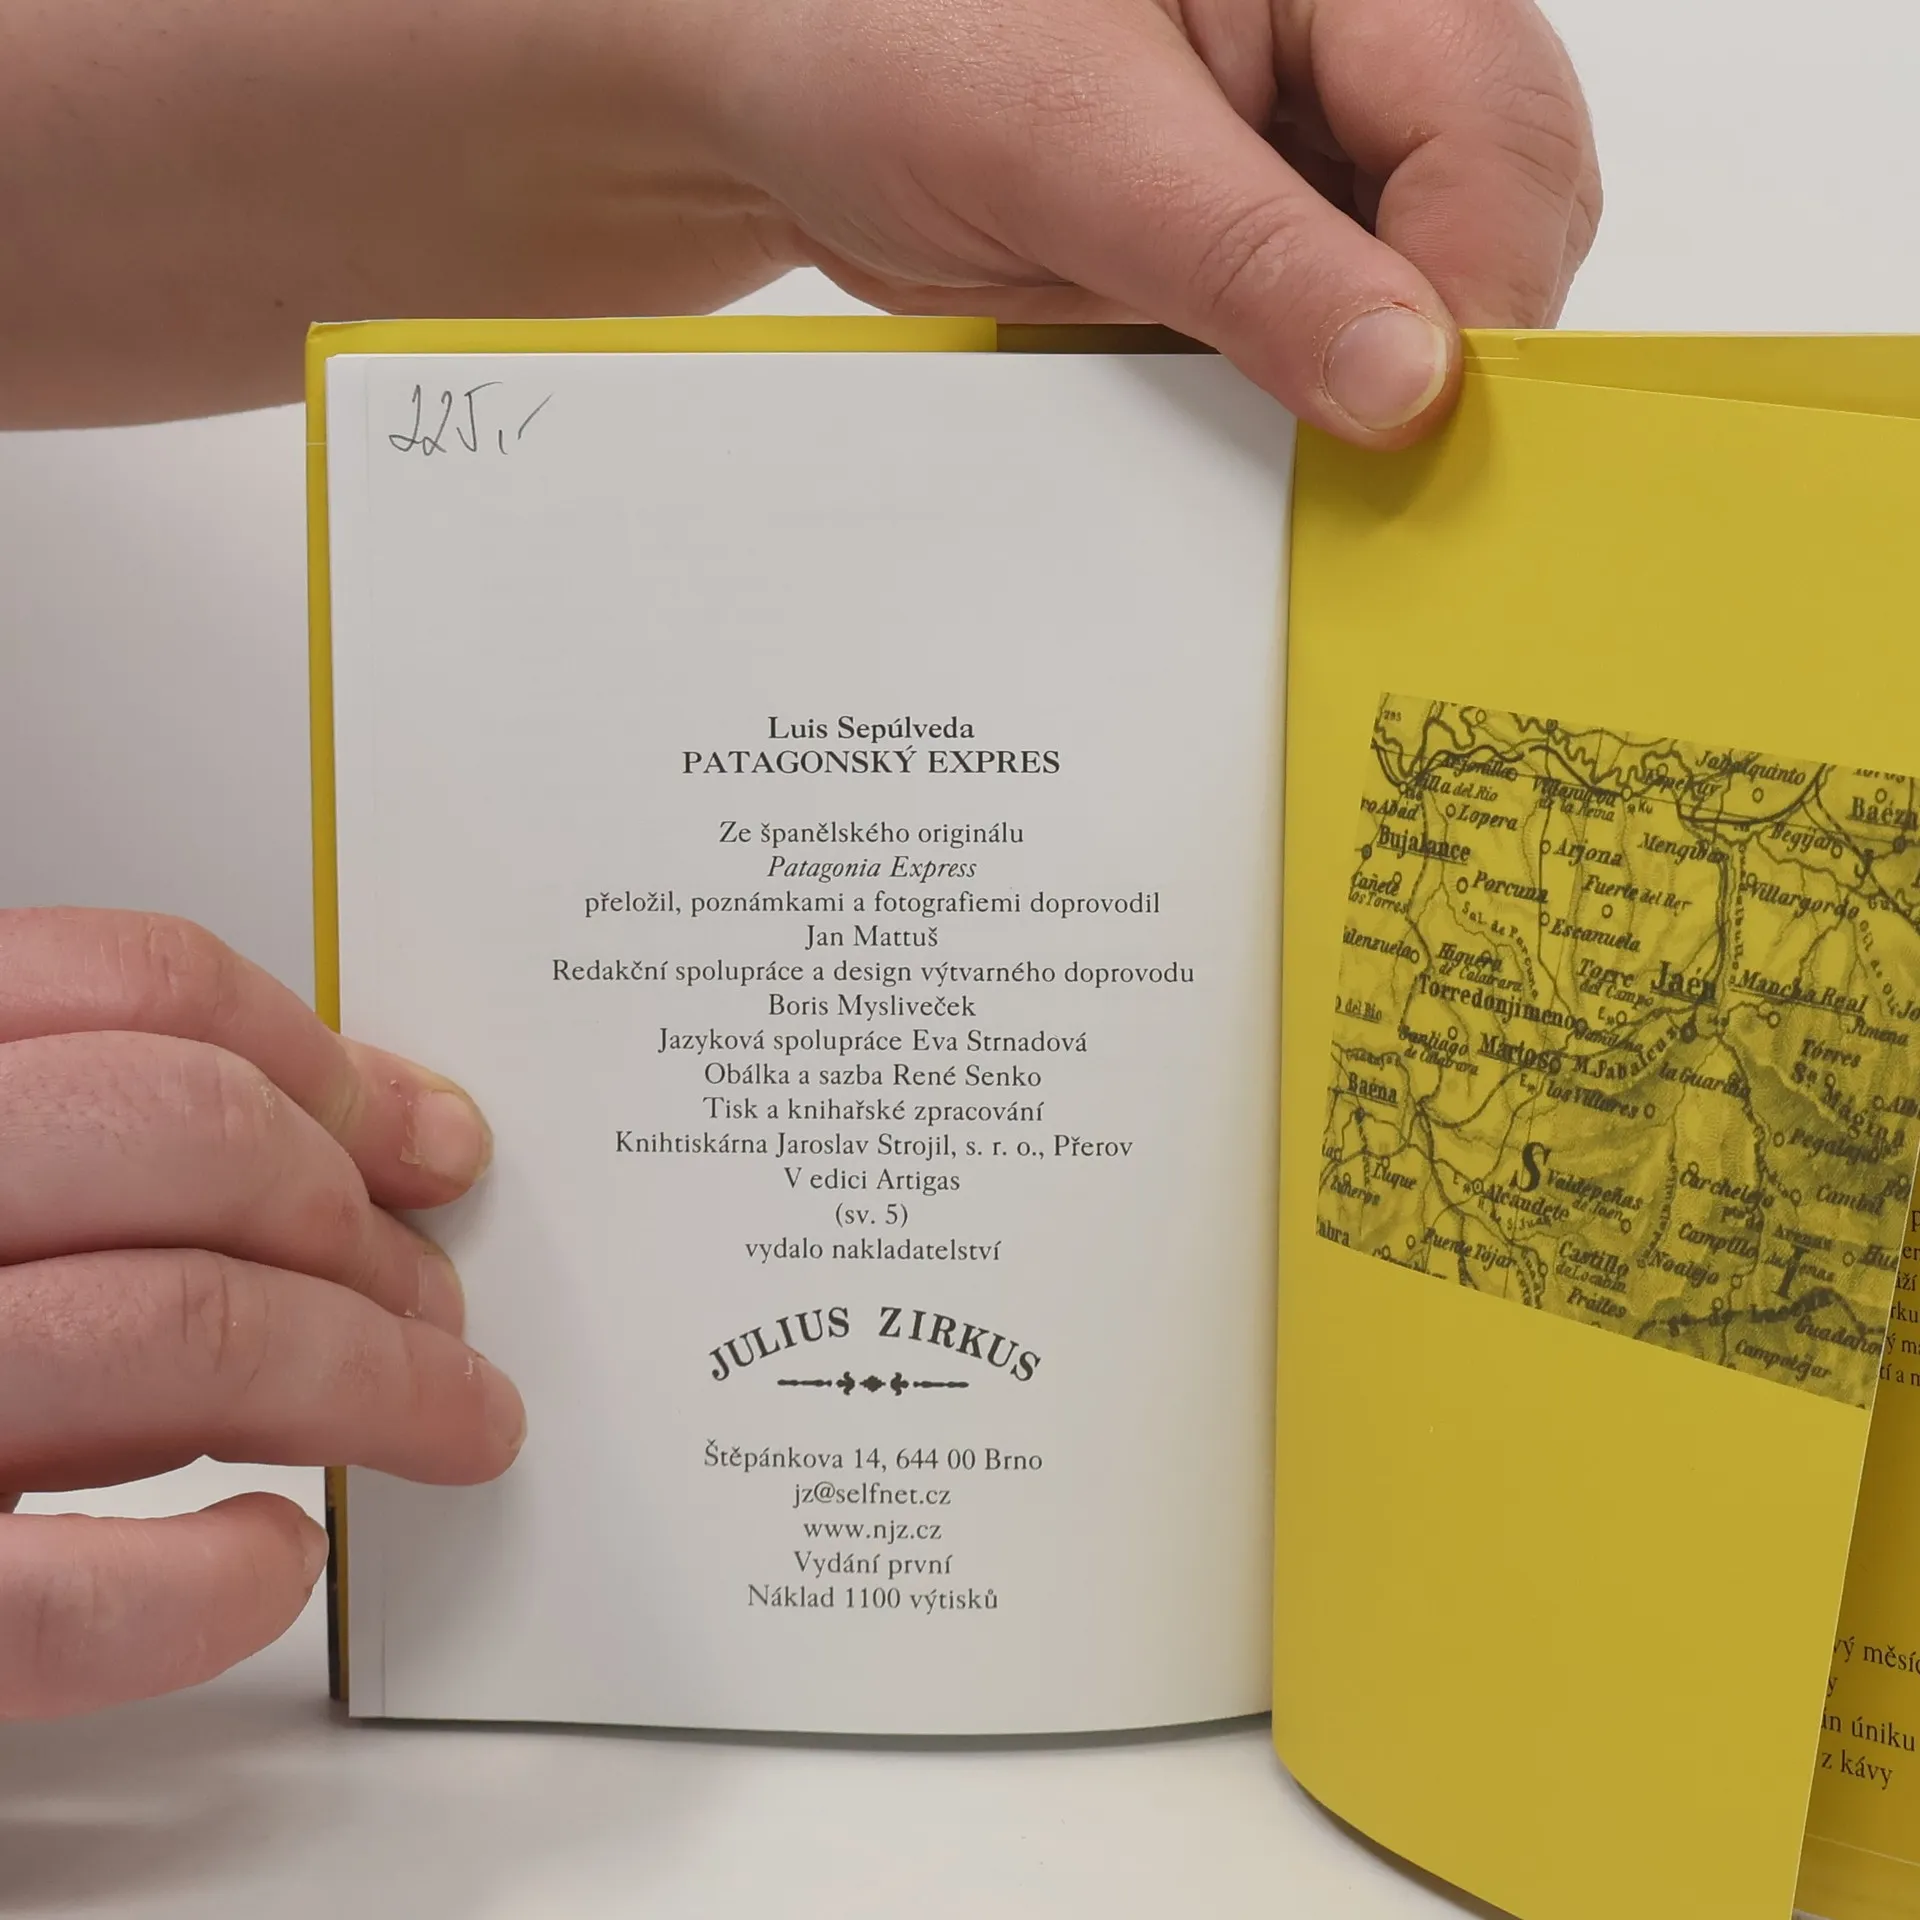 225,-
Luis Sepúlveda
PATAGONSKÝ EXPRES
Ze španělského originálu
Patagonia Express
přeložil, poznámkami a fotografiemi doprovodil
Jan Mattuš
Redakční spolupráce a design výtvarného doprovodu
Boris Mysliveček
Jazyková spolupráce Eva Strnadová
Obálka a sazba René Senko
Tisk a knihařské zpracování
Knihtiskárna Jaroslav Strojil, s. r. o., Přerov
V edici Artigas
(sv. 5)
vydalo nakladatelství
JULIUS ZIRKUS
Štěpánkova 14, 644 00 Brno
jz@selfnet.cz
www.njz.cz
Vydání první
Náklad 1100 výtisků
Jabalquinto
Villa del Rio
Lopera
Bujalance
Arjona
Porcuna
Fuerte del Rer
Villargordo
Escanuela
Higuera
de Calatrava
Torre
del Campo
Jaén
Mancha Real
Torredonjimeno
Santiago
de Calatrava
Martos
Torres
Baena
los Villares
la Guardia
Luque
Valdepeñas
de Jaen
Alcaudete
Carchelejo
Cambil
Fuente Tójar
Castillo
de Locubin
Noalejo
Campillo
de Arenas
Frailes
Campotéjar
úniku
z kávy